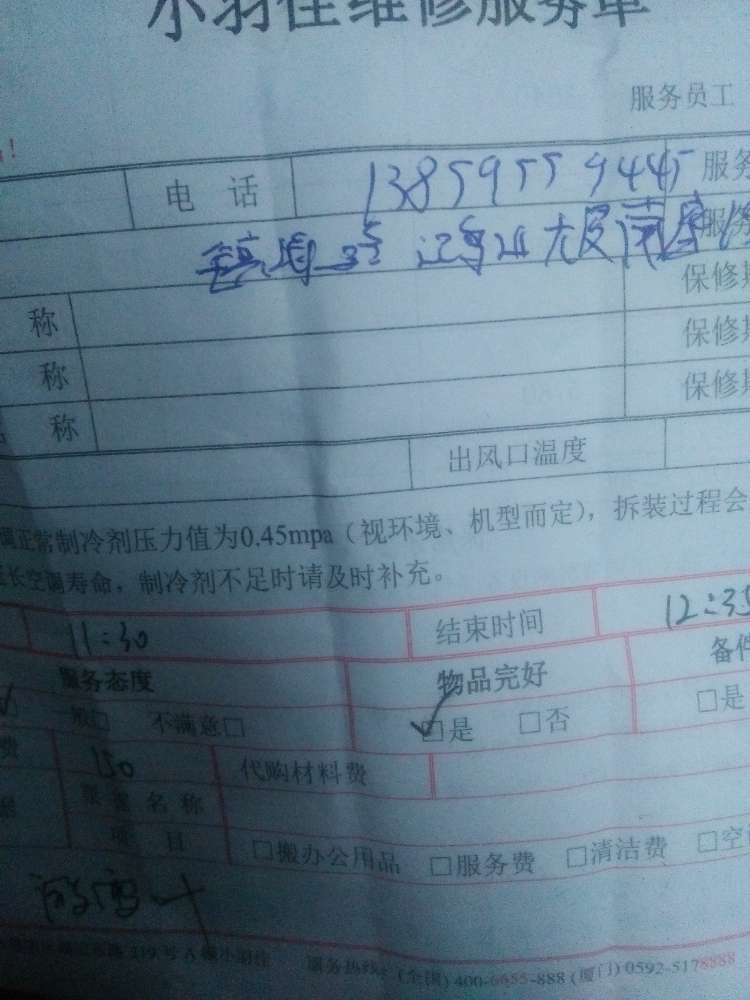 小羽佳维修服务单
服务员工
!
电 话 13859559445 服务
服务
称 保修期
称 保修期
称 保修期
出风口温度
调正常制冷剂压力值为0.45mpa（视环境、机型而定），拆装过程会
长空调寿命，制冷剂不足时请及时补充。
11:30 结束时间 12:35
服务态度 物品完好 备件
般□ 不满意□ □是 □否 □是
费 150 代购材料费
名 称
项 目 □搬办公用品 □服务费 □清洁费 □空
119号A 小羽佳 服务热线：(全国)400-6655-888 (厦门)0592-5178888